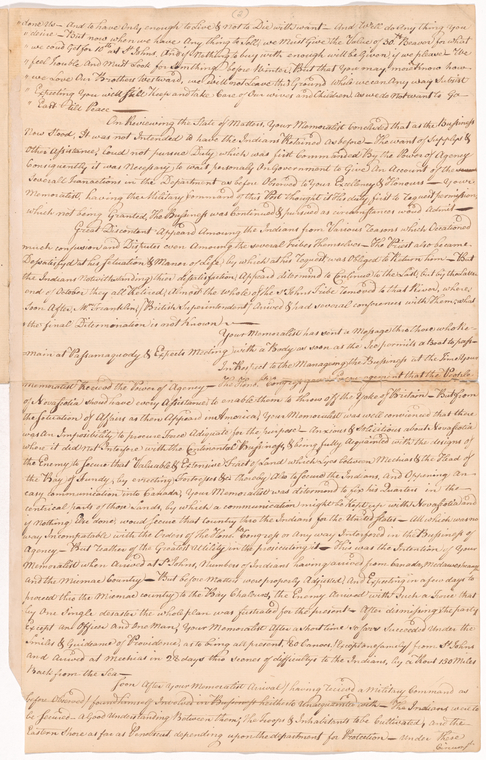 (2)
done Us – And to have only enough to Live & not to Die with want – And Will do any thing you
desire – But now when we have Any thing to Sell, we must give the Value of 30/ in Beaver for what
we coud Get for 10/ at St Johns, And if Nothing to buy with enough will be given if we please. We
feel trouble And must Look for Something before Winter, But that You may must know how
we Love Our Brothers Westward, we will not Leave this Ground whilst we can Any way Subsist
Expecting You will Still Keep and take Care of Our wives and Children, as we do not want to Go
East till Peace –
On Reviewing the State of Matters, Your Memorialist Concluded that as the Business
Now Stood, It was not Intended to have the Indians Retained as before – The want of Supplys &
Other Assistance, Could not pursue Duty, which was first Commanded By the Power of Agency
Consequently it was Necessary, to wait personally On Government to Give An Account of the
Severall transactions in the Department as before Observed to Your Excellency & Honours – Your
Memorialist, having the Military Command of this Post thought it His duty, first to Request permission,
which not being Granted, the Business was Continued & pursued as Circumstances woud Admit –
Great Discontent Appeard Amoung the Indians from Various Reasons which Occationed
much confusion and Disputes even Amoung the several Tribes themselves – The Priest also became
Dissatisfyed at his situation & Manner of Life, by which at his Request was Obliged to Return him – But
the Indians Notwithstanding their disatisfaction, Appeard determined to Continue to the Last, but by the latter
end of October they all Retired, Almost the whole of the St Johns Tribe Toward to that River, where
Soon After, Mr Franklin, (British Superintendent) Arived & had several conferences with them, what
the final Determination is is not Known –
Your Memorialist has sent a Message to those who Re-
main at Passamaquody & Expects Meeting with a Body as soon as the Ice permits a Boat to pass –
In Respect to the Managing the Business at the Time Your
Memorialist Received the Power of Agency – The Honble Congress gave Encouragement that the People
of Novascotia Shoud have every Assistance to enable them to throw off the Yoke of Britain – But from
the Situation of Affairs as then Appeard in America, Your Memorialist was well convinced that there
was An Impossibility to procure Force Adequate for the purpose – Anxious & Solicitious about Novascotia
where it did not Interfere with the Continental Business, & being fully Acquainted with the designs of
the Enemy to secure that Valuable & Extensive Tract of Land which Lyes between Mechias & the Head
of the Bay of Fundy, by erecting Fortresses & thereby Also to secure the Indians, And Opening An
easy communication into Canada, Your Memorialist was determined to fix his Quarters in the
centrical parts of those Lands, by which a communication might be Kept up with Novascotia and
if Nothing Else done, woud secure that Country & the Indians for the United States – All which was no
way Incompatable with the Orders of the Honble Congress or Any way Interfered in the Business of
Agency – But Rather of the Greatest Utility in the prosecuting it – This was the Intention of Your
Memorialist when Arived at St Johns, Numbers of Indians having arrived from Canada, Medawescook
and the Micmac Country – But before Matters were properly Adjusted, And Expecting in a few days to
proceed thro the Micmac Country to the Bay Chalours, the Enemy Arived with Such a Force that
by One Single disaster the whole plan was frustrated for the present – After dismissing the party
Except an Officer And One Man, Your Memorialist After a Short time So far Succeeded Under the
Smiles & Guidance of Providence, as to bring all present, (80 Canoes) (except one family) from St Johns
and Arived at Mechias in 28 days thro Scenes of difficultys to the Indians, by a Rout 150 Miles
Back from the Sea –
Soon After Your Memorialist Arival, (having Received a Military Command as
before Observed) found Himself Involved in Business hetherto Unacquainted with – The Indians were to
be secured – a Good Understanding Between them, the Troops & Inhabitants to be Cultivated, and the
Eastern Shore as far as Penobscot depending upon the department for Protection – Under these
Circumst